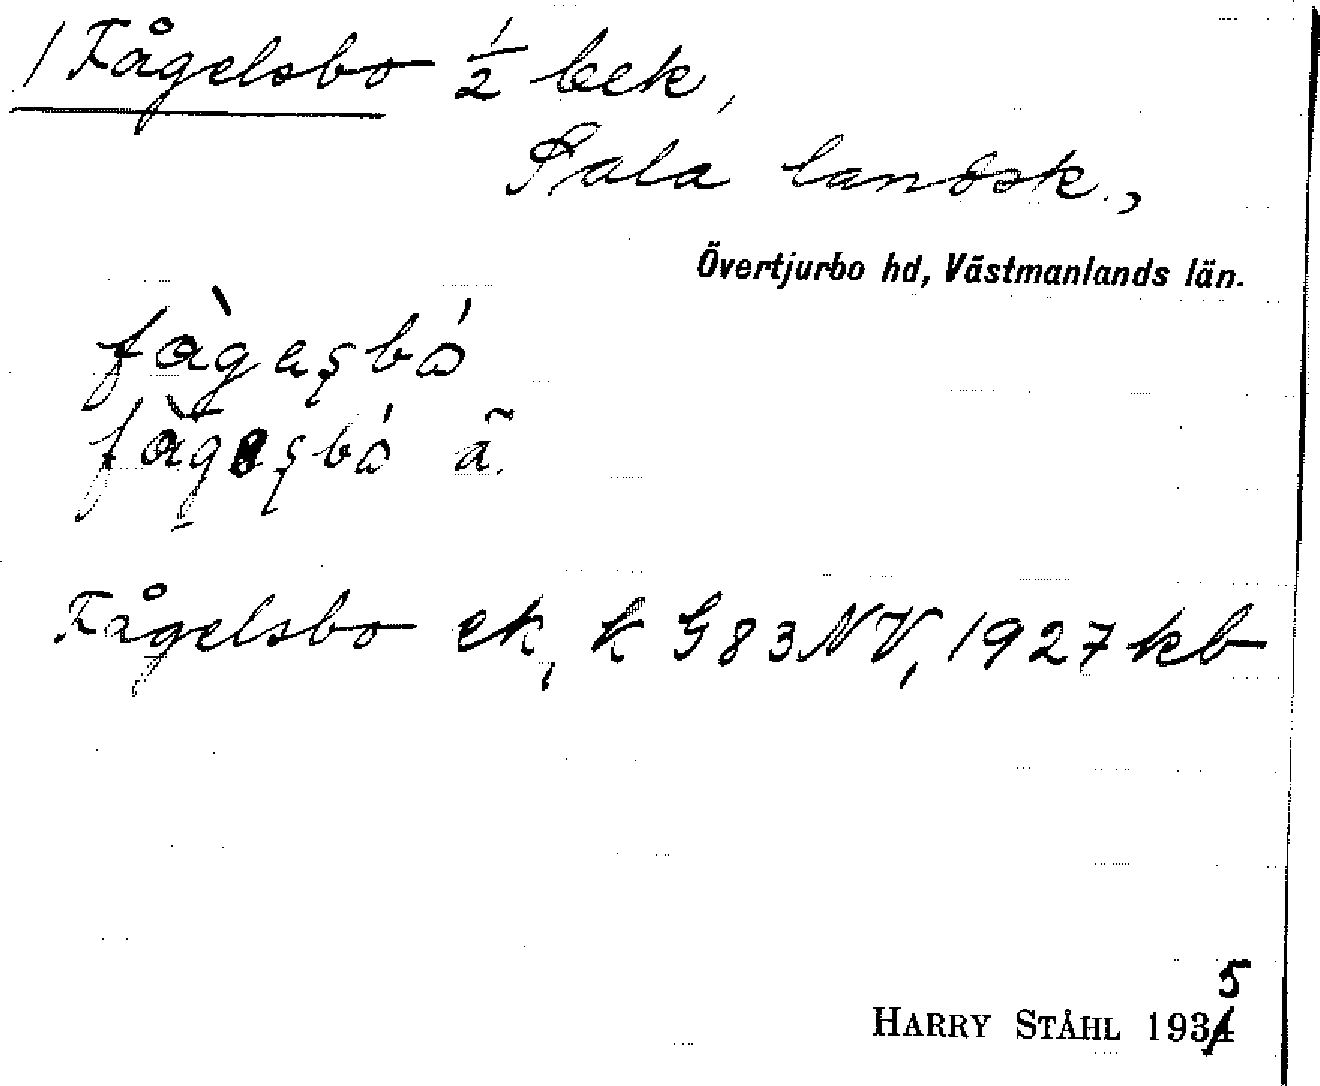 / Fågelsbo ½ bek,
Sala landsk.,
Övertjurbo hd, Västmanlands län.
Fågelsbo ek, k G83NV, 1927 kb
HARRY STÅHL 1935